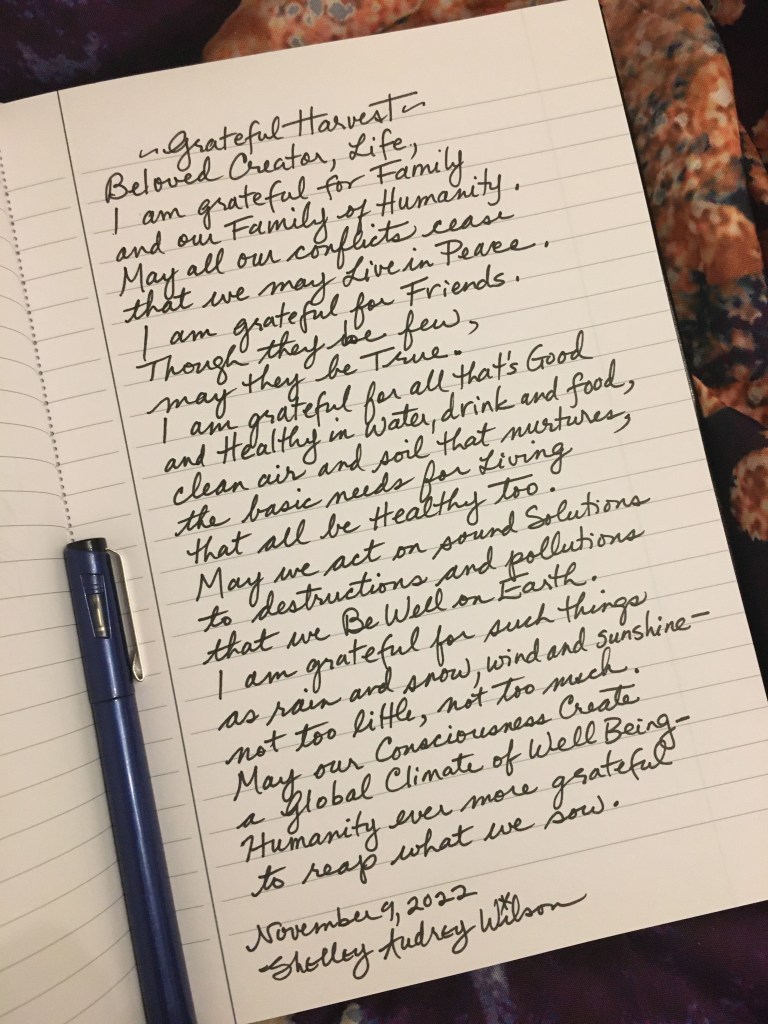 ~ Grateful Harvest ~
Beloved Creator, Life,
I am grateful for Family
and our Family of Humanity.
May all our conflicts cease
that we may Live in Peace.
I am grateful for Friends.
Though they be few,
may they be True.
I am grateful for all that's Good
and Healthy in Water, drink and food,
clean air and soil that nurtures,
the basic needs for Living
that all be Healthy too.
May we act on sound Solutions
to destructions and pollutions
that we Be Well on Earth.
I am grateful for such things
as rain and snow, wind and sunshine—
not too little, not too much.
May our Consciousness Create
a Global Climate of Well Being—
Humanity ever more grateful
to reap what we sow.
November 9, 2022
~Shelley Audrey Wilson